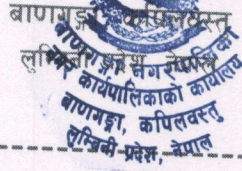 बाणगङ्गा, कपिलवस्तु
लुम्बिनी प्रदेश, नेपाल
बाणगङ्गा नगरपालिका
नगर कार्यपालिकाको कार्यालय
बाणगङ्गा, कपिलवस्तु
लुम्बिनी प्रदेश, नेपाल